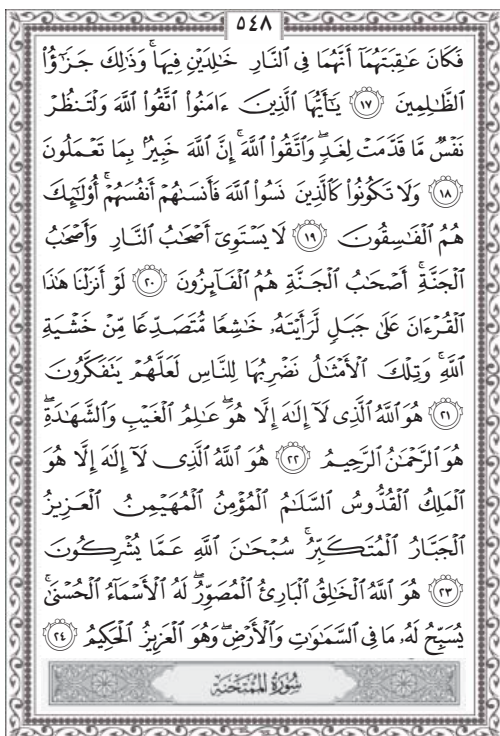 ٥٤٨
فَكَانَ عَٰقِبَتَهُمَآ أَنَّهُمَا فِى ٱلنَّارِ خَٰلِدَيْنِ فِيهَا ۚ وَذَٰلِكَ جَزَٰٓؤُا۟
ٱلظَّٰلِمِينَ ١٧ يَٰٓأَيُّهَا ٱلَّذِينَ ءَامَنُوا۟ ٱتَّقُوا۟ ٱللَّهَ وَلْتَنظُرْ
نَفْسٌ مَّا قَدَّمَتْ لِغَدٍ ۖ وَٱتَّقُوا۟ ٱللَّهَ ۚ إِنَّ ٱللَّهَ خَبِيرٌۢ بِمَا تَعْمَلُونَ
١٨ وَلَا تَكُونُوا۟ كَٱلَّذِينَ نَسُوا۟ ٱللَّهَ فَأَنسَىٰهُمْ أَنفُسَهُمْ ۚ أُو۟لَٰٓئِكَ
هُمُ ٱلْفَٰسِقُونَ ١٩ لَا يَسْتَوِىٓ أَصْحَٰبُ ٱلنَّارِ وَأَصْحَٰبُ
ٱلْجَنَّةِ ۚ أَصْحَٰبُ ٱلْجَنَّةِ هُمُ ٱلْفَآئِزُونَ ٢٠ لَوْ أَنزَلْنَا هَٰذَا
ٱلْقُرْءَانَ عَلَىٰ جَبَلٍ لَّرَأَيْتَهُۥ خَٰشِعًا مُّتَصَدِّعًا مِّنْ خَشْيَةِ
ٱللَّهِ ۚ وَتِلْكَ ٱلْأَمْثَٰلُ نَضْرِبُهَا لِلنَّاسِ لَعَلَّهُمْ يَتَفَكَّرُونَ
٢١ هُوَ ٱللَّهُ ٱلَّذِى لَآ إِلَٰهَ إِلَّا هُوَ ۖ عَٰلِمُ ٱلْغَيْبِ وَٱلشَّهَٰدَةِ ۖ
هُوَ ٱلرَّحْمَٰنُ ٱلرَّحِيمُ ٢٢ هُوَ ٱللَّهُ ٱلَّذِى لَآ إِلَٰهَ إِلَّا هُوَ
ٱلْمَلِكُ ٱلْقُدُّوسُ ٱلسَّلَٰمُ ٱلْمُؤْمِنُ ٱلْمُهَيْمِنُ ٱلْعَزِيزُ
ٱلْجَبَّارُ ٱلْمُتَكَبِّرُ ۚ سُبْحَٰنَ ٱللَّهِ عَمَّا يُشْرِكُونَ
٢٣ هُوَ ٱللَّهُ ٱلْخَٰلِقُ ٱلْبَارِئُ ٱلْمُصَوِّرُ ۖ لَهُ ٱلْأَسْمَآءُ ٱلْحُسْنَىٰ ۚ
يُسَبِّحُ لَهُۥ مَا فِى ٱلسَّمَٰوَٰتِ وَٱلْأَرْضِ ۖ وَهُوَ ٱلْعَزِيزُ ٱلْحَكِيمُ ٢٤
سُورَةُ المُمْتَحنَةِ